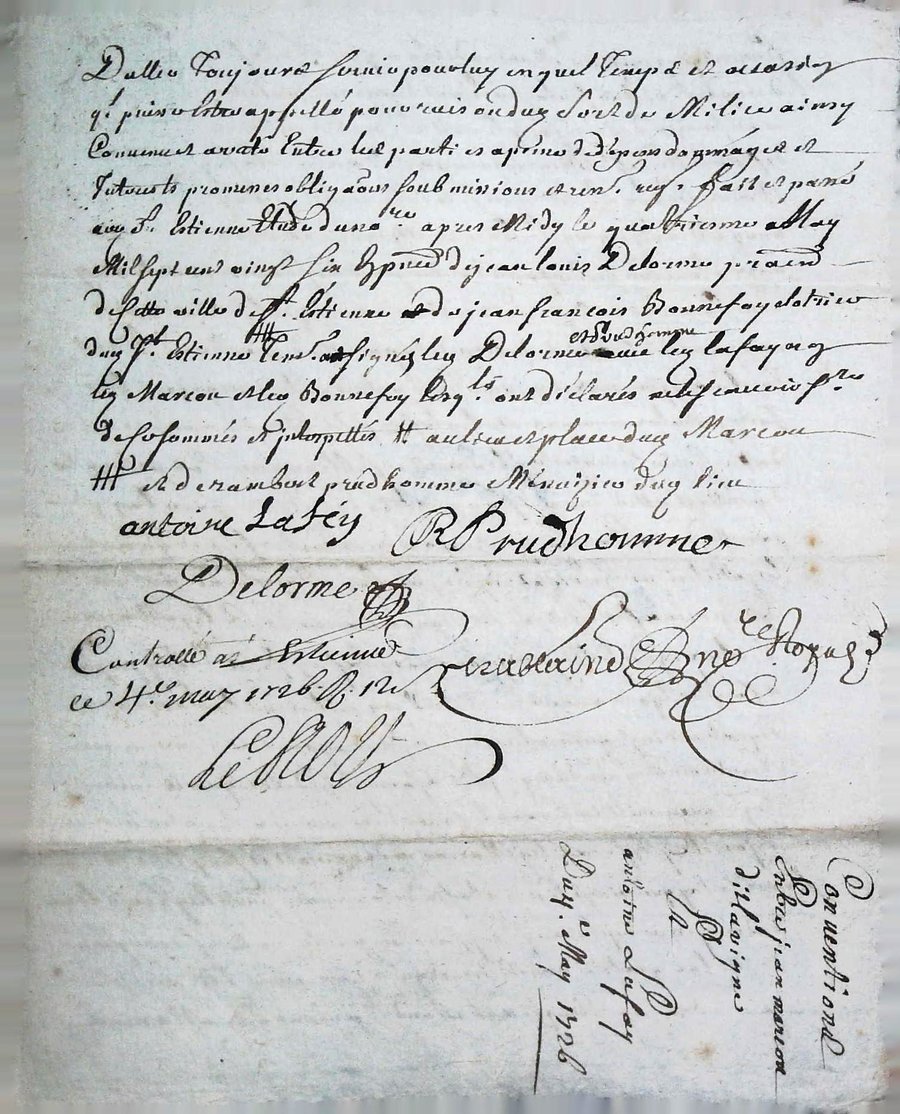 Daller Toujours servir pour luy en quel Temps et occasion
q.l puisse Estre appellé pour raison dud sort de Milice ainsy
Convenu et aresté Entre les parties a peine de despens domages et
Interests promesses obliga͠ons soubmissions et ren.s Fait et passé
aud S.t Estienne Etude du no.re apres Midy le quatriesme May
Mil sept cent vingt six En pnce de jean louis Delorme pratn
de cette ville de S.t Estienne et de jean francois Bonnefoy
dud S.t Estienne signés led Delorme et prudhomme avec led lafay
led Marcou et led Bonnefoy lesq.ls ont déclarés ne sçauoir
de ce sommés et interpellés # au lieu et place dud Marcou
# et de rambert prudhomme du lieu
antoine Lafey
R Prudhomme
Delorme
Controllé a S.t Estienne
le 4.e may 1726 R. 12
no.re Royal
Conuentions
Entre jean marcou
dit lavigne
Et
antoine Lafay
Du 4.e May 1726